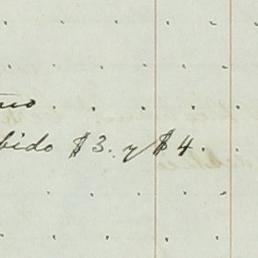 no
bido $3. y $4.